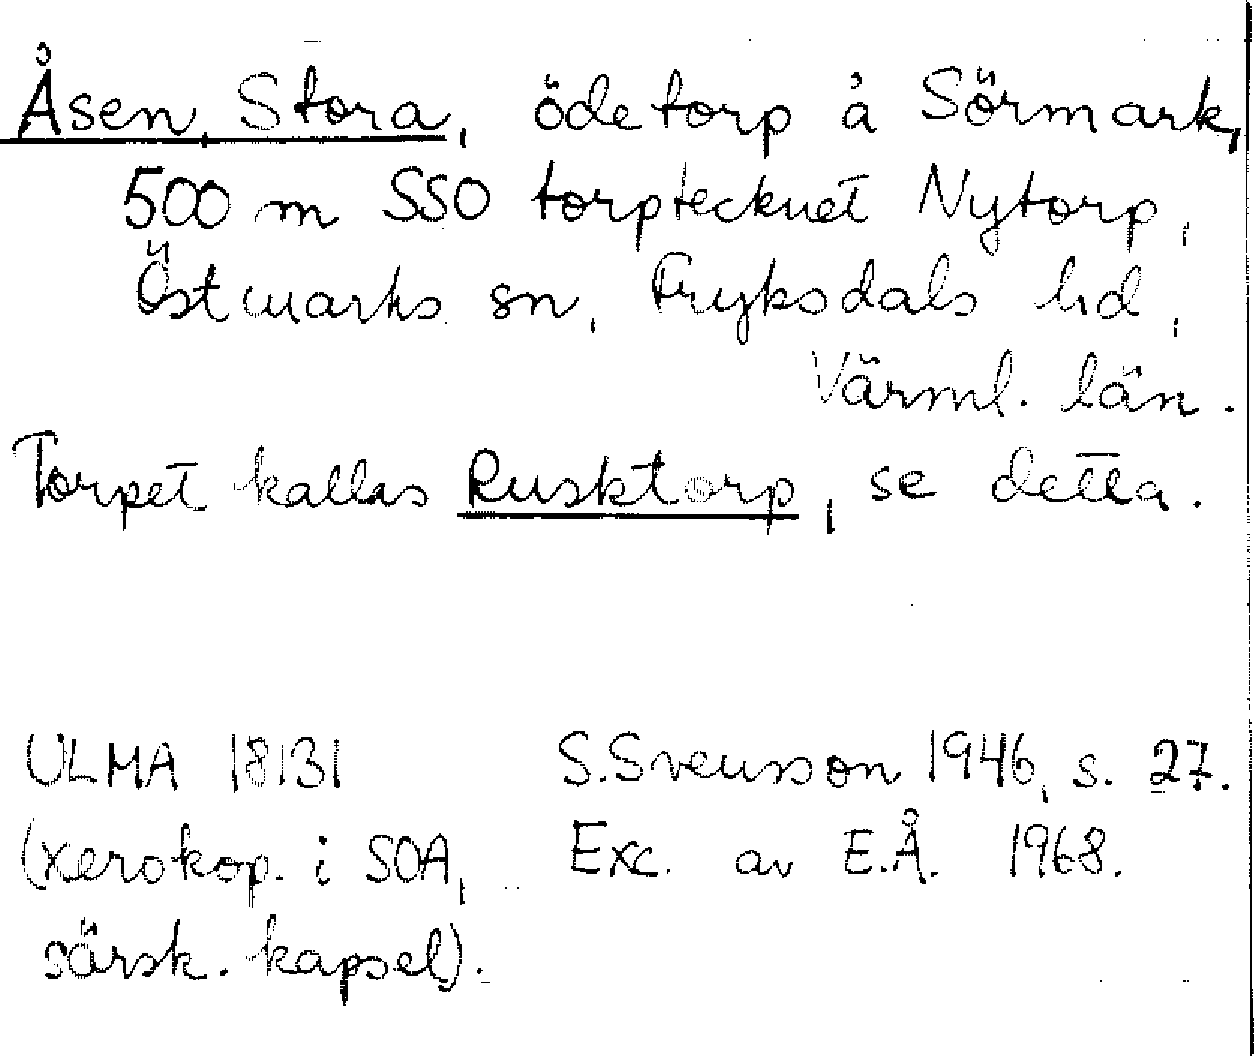 Åsen, Stora, ödetorp å Sörmark,
500 m SSO torptecknet Nytorp,
Östmarks sn, Fryksdals hd,
Värml. län.
Torpet kallas Rusktorp, se detta.
ULMA 18131 S.Svensson 1946, s. 27.
(xerokop. i SOA, Exc. av E.Å. 1968.
särsk. kapsel).